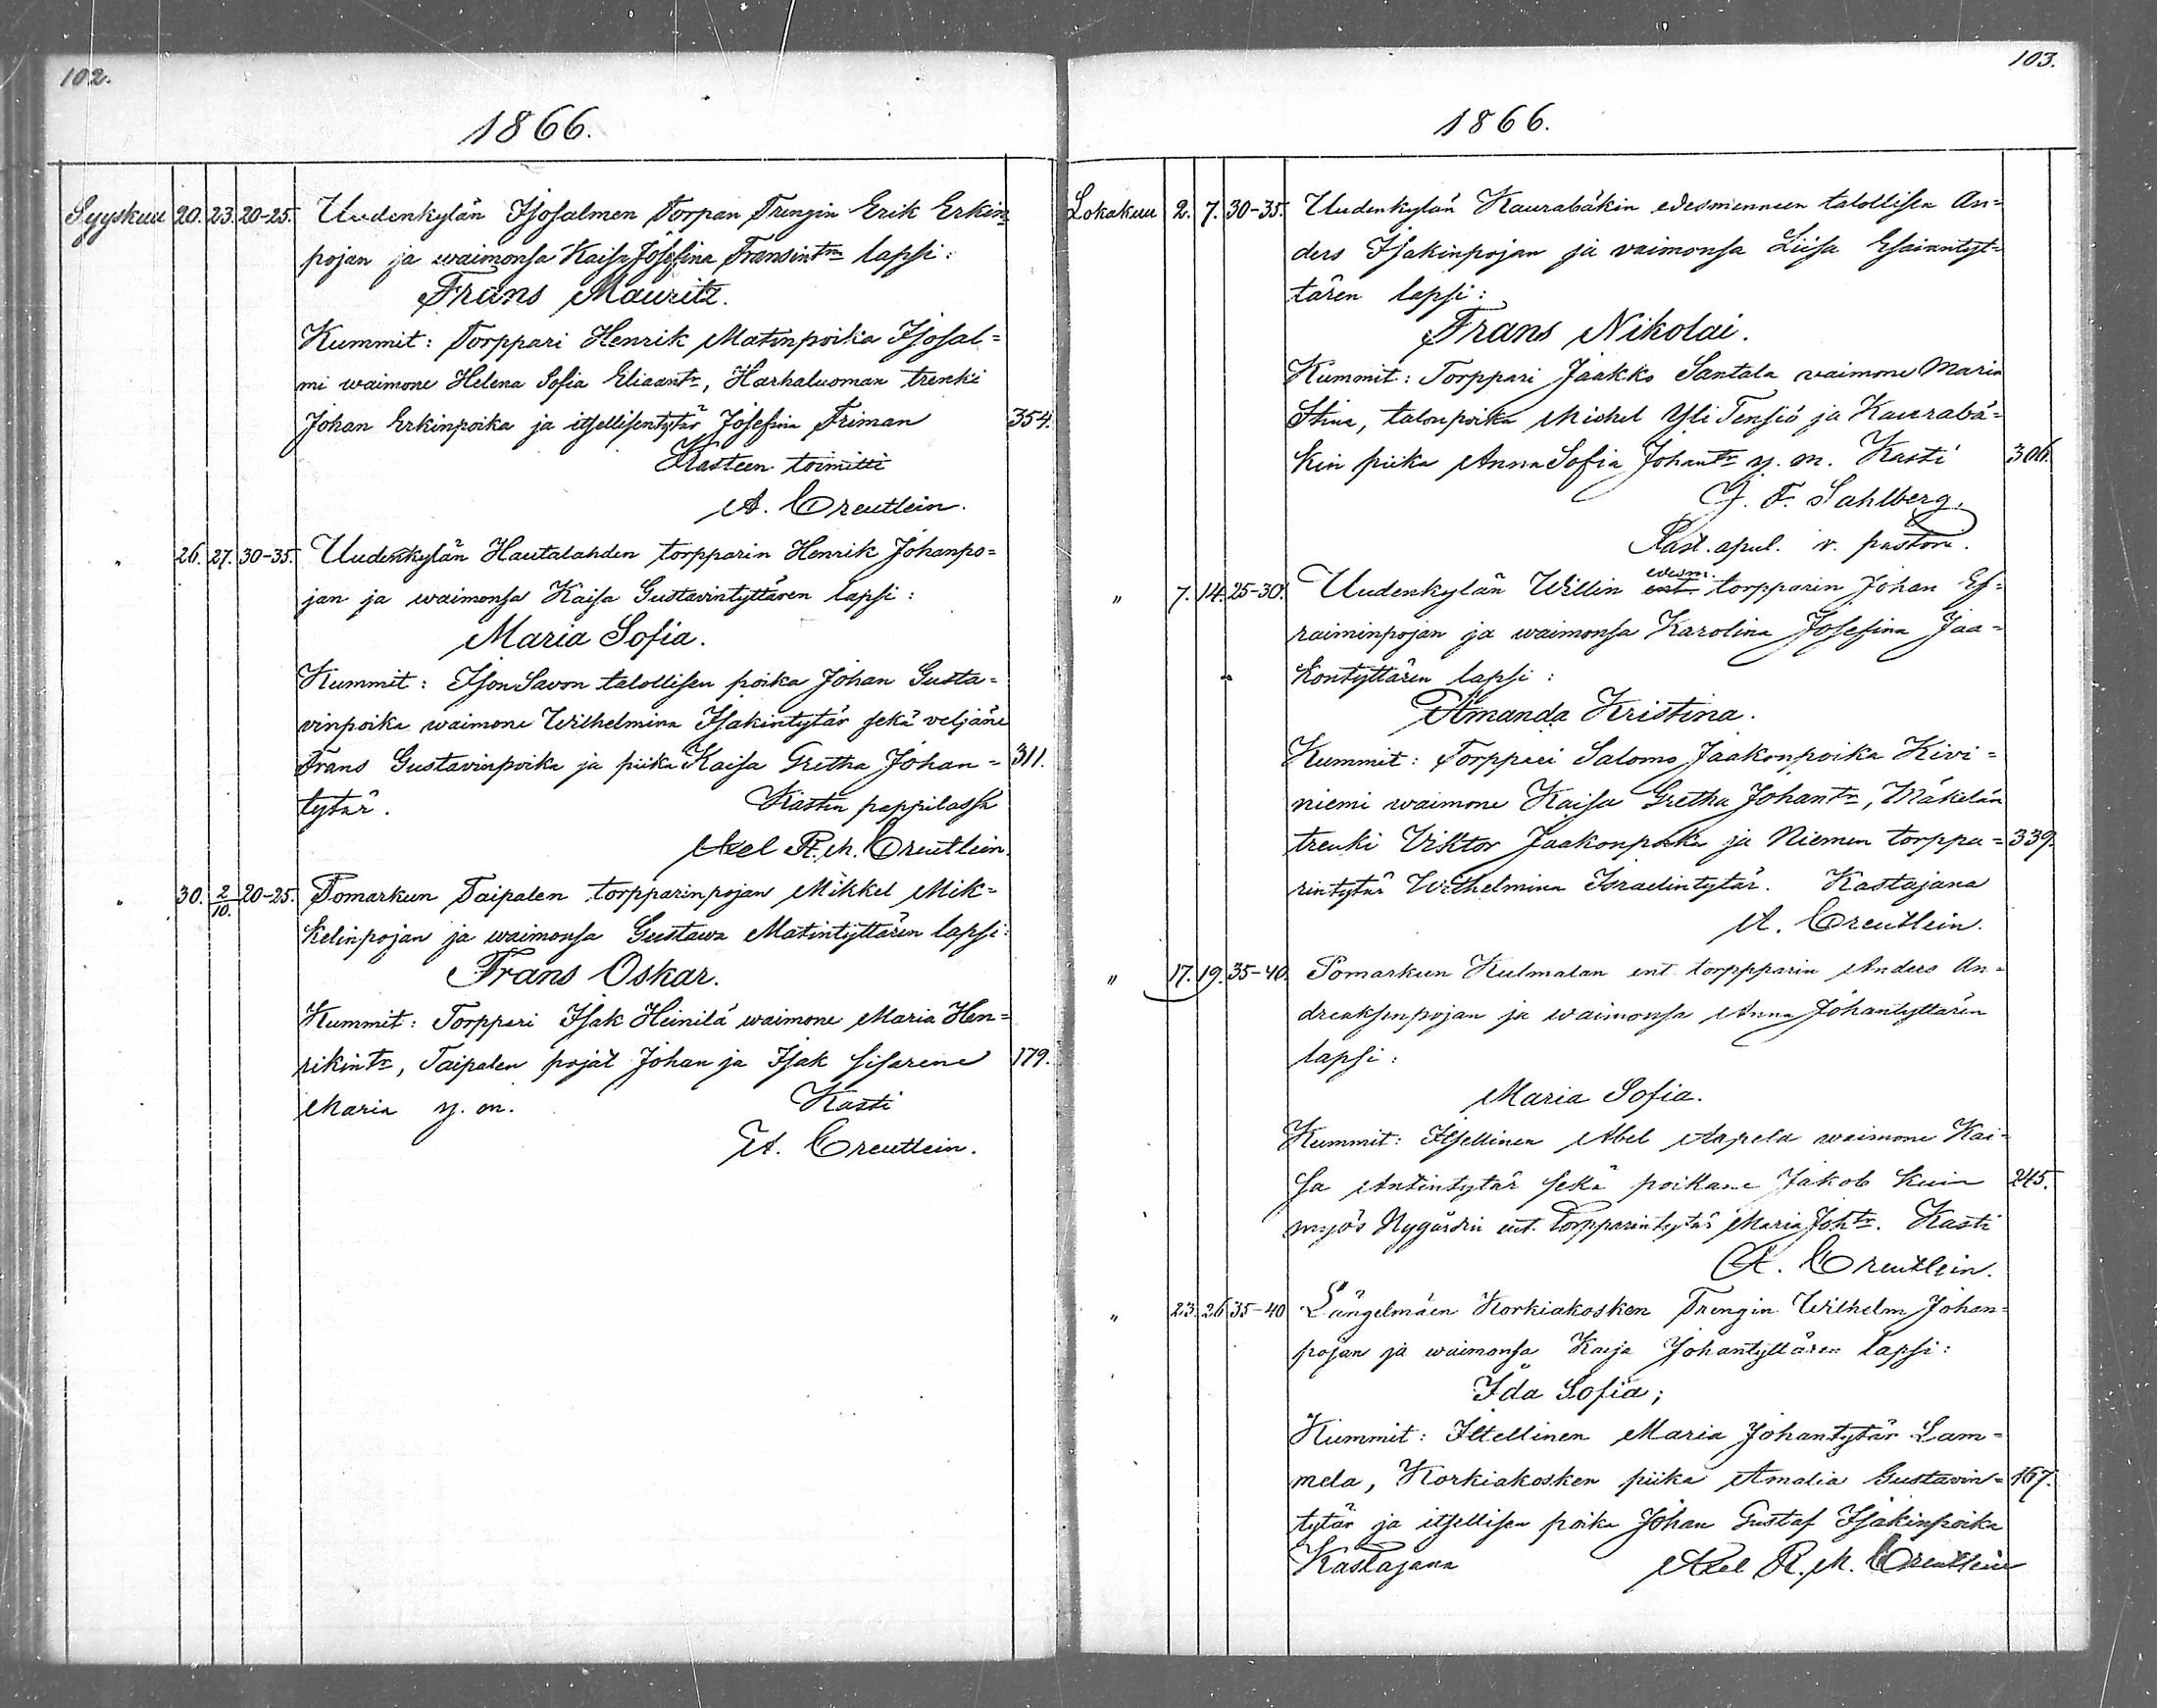 102.
1866.
Syyskuu 20. 23. 20-25. Uudenkylän Isosalmen Torpan Trengin Erik Erkin=
pojan ja waimonsa Kaisa Josefina Fransintrn lapsi:
Frans Mauritz.
Kummit: Torppari Henrik Matinpoika Isosal=
mi waimone Helena Sofia Eliaantr, Harhaluoman trenki
Johan Erkinpoika ja itsellisentytär Josefina Friman 354.
Kasteen toimitti
A. Creutlein.
" 26. 27. 30-35. Uudenkylän Hautalahden torpparin Henrik Johanpo=
jan ja waimonsa Kaisa Gustavintyttären lapsi:
Maria Sofia.
Kummit: Ison Savon talollisen poika Johan Gusta=
vinpoika waimone Wilhelmina Isakintytär sekä veljäne
Frans Gustavinpoika ja piika Kaisa Gretha Johan= 311.
tytär. Kastin pappilassa
Axel R. M. Creutlein.
" 30. 2/10. 20-25. Pomarkun Taipalen torpparinpojan Mikkel Mik=
kelinpojan ja waimonsa Gustawa Matintyttären lapsi:
Frans Oskar.
Kummit: Torppari Isak Heinilä waimone Maria Hen=
rikintr, Taipalen pojat Johan ja Isak sisarene 179.
Maria y. m. Kasti
A. Creutlein.
103.
1866.
Lokakuu 2. 7. 30-35. Uudenkylän Kaurabäkin edesmenneen talollisen An=
ders Isakinpojan ja vaimonsa Liisa Esaiantyt=
tären lapsi:
Frans Nikolai.
Kummit: Torppari Jaakko Santala vaimone Maria
Stina, talonpoika Michel Yli Tensiö ja Kaurabä=
kin piika Anna Sofia Johantr y. m. Kasti 306.
G. F. Sahlberg.
Past. apul. v. pastori.
" 7. 14. 25-30. Uudenkylän Willin ent. edesm. torpparin Johan Ef=
raiminpojan ja waimonsa Karolina Josefina Jaa=
kontyttären lapsi:
Amanda Kristina.
Kummit: Torppari Salomo Jaakonpoika Kivi=
niemi waimone Kaisa Gretha Johantr, Mäkelän
trenki Viktor Jaakonpoika ja Niemen torppa= 339.
rintytär Wilhelmina Israelintytär. Kastajana
A. Creutlein.
" 17. 19. 35-40. Pomarkun Kulmalan ent. torppparin Anders An=
dreaksenpojan ja waimonsa Anna Johantyttären
lapsi:
Maria Sofia.
Kummit: Itsellinen Abel Aapela waimone Kai=
sa Antintytär sekä poikane Jakob kuin 245.
myös Nygårdin ent. Torpparintytär Maria Johtr. Kasti
A. Creutlein.
" 23. 26 35-40 Längelmäen Korkiakosken Trengin Wilhelm Johan=
pojan ja waimonsa Kaisa Johantyttären lapsi:
Ida Sofia;
Kummit: Itsellinen Maria Johantytär Lam=
mela, Korkiakosken piika Amalia Gustavin= 167.
tytär ja itsellisen poika Johan Gustaf Isakinpoika
Kastajana Axel R. M. Creutlein